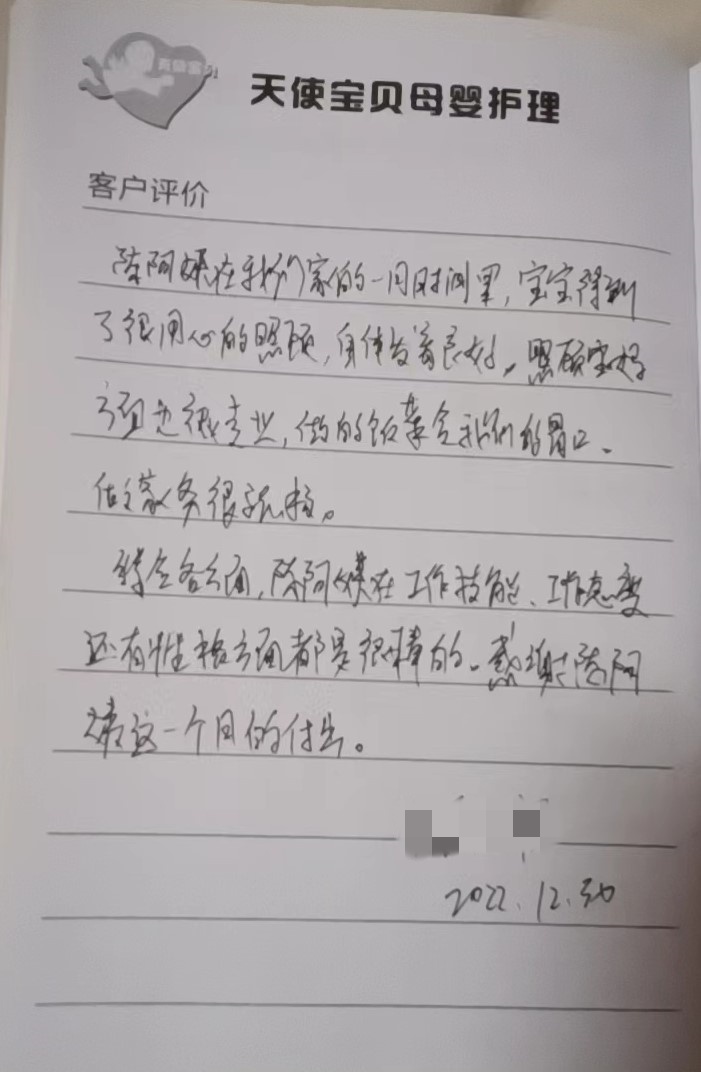 天使宝贝母婴护理
客户评价
陈阿姨在我们家的一月时间里，宝宝得到
了很用心的照顾，身体发育良好。照顾宝妈
方面也很专业，做的饭菜合我们的胃口、
做家务很
综合各方面，陈阿姨在工作技能、工作态度
还有性格方面都是很棒的。感谢陈阿
姨这一个月的付出。
2022.12.30